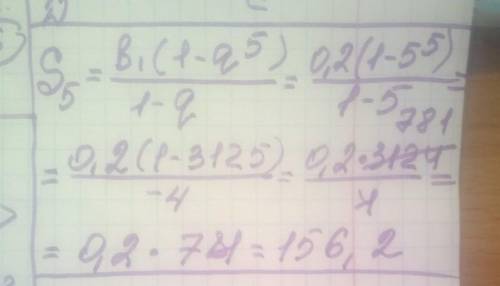 S₅ = в₁(1-q⁵)/(1-q) = 0,2(1-5⁵)/(1-5) =
= 0,2(1-3125)/(-4) = 0,2·3124 781/4 =
= 0,2 · 781 = 156,2